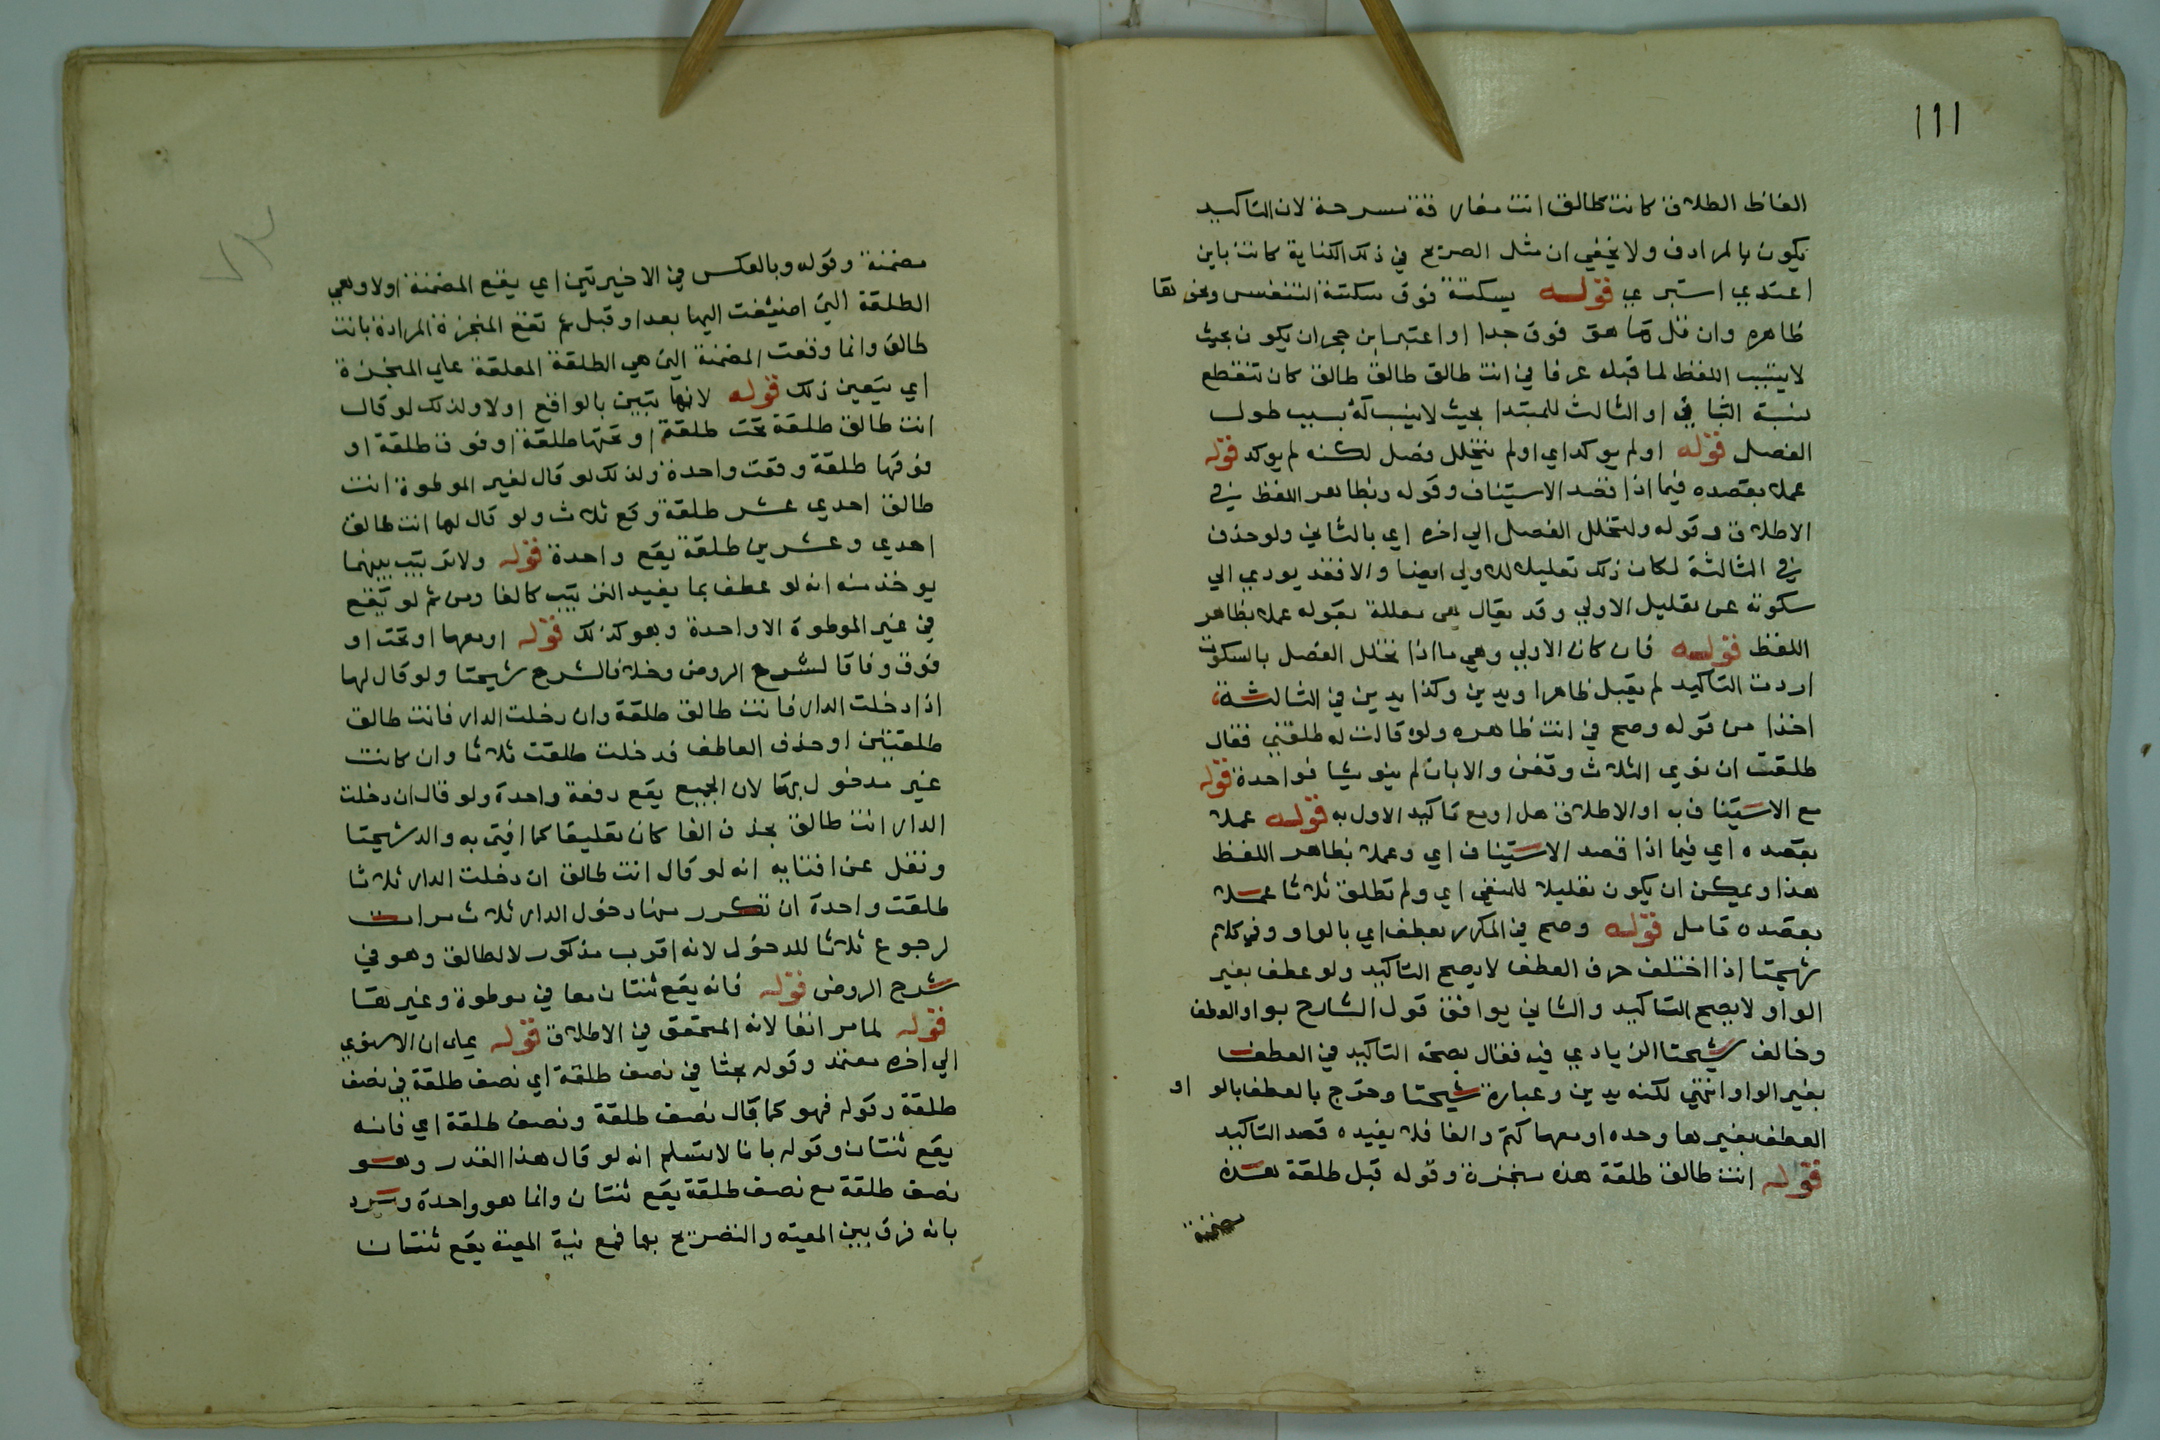 ١١١
الفاظ الطلاق كانت طالق انت مفارقة مسرحة لان التاكيد
يكون بالمرادف ولا يخفي ان مثل الصريح في ذلك الكناية كانت باين
اعتدي استبري قوله بسكتة فوق سكتة التنفس ونحو
ظاهره وان قل ما هو فوق جدا او اعتبر ابن حجر ان يكون بحيث
لا ينسب اللفظ لما قبله عرفا في انت طالق طالق طالق كان تنقطع
نسبة الثاني او الثالث للمبتدا بحيث لا ينسب له بسبب طول
الفصل قوله او لم يوكد اي او لم يتخلل فصل لكنه لم يوكد قوله
عملا بقصده فيما اذا قصد الاستيناف وقوله وبظاهر اللفظ في
الاطلاق وقوله ولتخلل الفصل الي اخره اي بالثاني ولو حذف
في الثالثة لكان ذلك تعليلا للاولي ايضا والا فقد يودي الي
سكوته عن تعليل الاولي وقد يقال هي معللة بقوله عملا بظاهر
اللفظ قوله فان كان الاولي وهي ما اذا تخلل الفصل بالسكوت
اردت التاكيد لم يقبل ظاهرا ويدين وكذا يدين في الثالثة
اخذا من قوله وصح في انت ظاهره ولو قالت له طلقني فقال
طلقت ان نوي الثلاث وقعن والا بان لم ينو شيا فواحدة قوله
مع الاستيناف به او الاطلاق هل او مع تاكيد الاول به قوله عملا
بقصده اي فيما اذا قصد الاستيناف اي وعملا بظاهر اللفظ
هذا ويمكن ان يكون تعليلا للمنفي اي ولم تطلق ثلاثا عملا
بقصده تامل قوله وصح في المكرر بعطف اي بالواو وفي كلام
شيحنا اذا اختلف حرف العطف لا يصح التاكيد ولو عطف بغير
الواو لا يصح التاكيد والثاني يوافق قول الشارح بواو العطف
وخالف شيحنا الزيادي فيه فقال بصحة التاكيد في العطف
بغير الواو انتهي لكنه يدين وعبارة شيحنا وخرج بالعطف بالواو
العطف بغيرها وحده او معها كثم والفا فلا يفيده قصد التاكيد
قوله انت طالق طلقة هذه منجزة وقوله قبل طلقة هذه
مضمنة
مضمنة وقوله وبالعكس في الاخيرتين اي يقع المضمنة اولا وهي
الطلقة التي اضيفت اليها بعد او قبل ثم تقع المنجزة المرادة بانت
طالق وانما وقعت المضمنة التي هي الطلقة المعلقة علي المنجزة
اي يتعين ذلك قوله لانها تبين بالواقع اولا ولذلك لو قال
انت طالق طلقة تحت طلقة او تحتها طلقة او فوق طلقة او
فوقها طلقة وقعت واحدة ولذلك لو قال لغير الموطوة انت
طالق احدي عشر طلقة وقع ثلاث ولو قال لها انت طالق
احدي وعشرين طلقة يقع واحدة قوله ولا ترتيب بينهما
يوخذ منه انه لو عطف بما يفيد الترتيب كالفا ومن ثم لو يقع
في غير الموطوة الا واحدة وهو كذلك قوله او معها او تحت او
فوق وفاقا لشرح الروض وخلافا لشرح شيحنا ولو قال لها
اذا دخلت الدار فانت طالق طلقة وان دخلت الدار فانت طالق
طلقتين او حذف العاطف فدخلت طلقت ثلاثا وان كانت
غير مدخول بها لان الجميع يقع دفعة واحدة ولو قال ان دخلت
الدار انت طالق بحذف الفا كان تعليقا كما افتي به والد شيحنا
ونقل عن افتايه انه لو قال انت طالق ان دخلت الدار ثلاثا
طلقت واحدة ان تكرر منها دخول الدار ثلاث مرات
لرجوع ثلاثا للدخول لانه اقرب مذكور لا لطالق وهو في
شرح الروض قوله فانه يقع ثنتان معا في موطوة وغيرها
قوله لما مر انفا لانه المحقق في الاطلاق قوله علي ان الاسنوي
الي اخره معتمد وقوله بحثا في نصف طلقة اي نصف طلقة في نصف
طلقة وقوله فهو كما قال نصف طلقة ونصف طلقة اي فانه
يقع ثنتان وقوله بانا لا نسلم انه لو قال هذا القدر وهو
نصف طلقة مع نصف طلقة يقع ثنتان وانما هو واحدة ويرد
بانه فرق بين المعية والتصريح بها فمع نية المعية يقع ثنتان